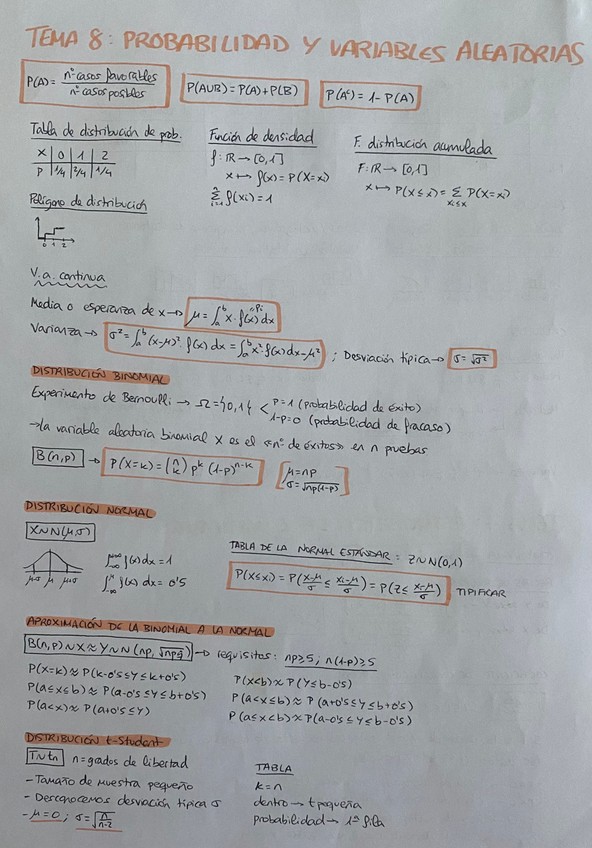 TEMA 8: PROBABILIDAD Y VARIABLES ALEATORIAS
P(A) = nº casos favorables / nº casos posibles
P(A∪B) = P(A) + P(B)
P(Aᶜ) = 1 - P(A)
Tabla de distribución de prob.
x | 0 | 1 | 2
P | 1/4 | 2/4 | 1/4
Polígono de distribución
0 1 2
Función de densidad
f: ℝ → [0,1]
x ↦ f(x) = P(X=xi)
∑ⁿᵢ₌₁ f(xi) = 1
F. distribución acumulada
F: ℝ → [0,1]
x ↦ P(X≤xi) = ∑ xi≤x P(X=xi)
V.a. continua
Media o esperanza de x → μ = ∫ₐᵇ x · f(x) dx
Pi
Varianza → σ² = ∫ₐᵇ (x-μ)² · f(x) dx = ∫ₐᵇ x² · f(x) dx - μ² ; Desviación típica → σ = √σ²
DISTRIBUCIÓN BINOMIAL
Experimento de Bernoulli → Ω = {0,1} < P=1 (probabilidad de éxito)
1-P=0 (probabilidad de fracaso)
→ la variable aleatoria binomial X es el «nº de éxitos» en n pruebas
B(n,p) → P(X=k) = (n k) pᵏ (1-p)ⁿ⁻ᵏ [μ=np
σ=√np(1-p)]
DISTRIBUCIÓN NORMAL
X∼N(μ,σ)
μ-σ μ μ+σ
∫₋∞⁺∞ f(x) dx = 1
∫₋∞^μ f(x) dx = 0'5
TABLA DE LA NORMAL ESTÁNDAR: Z∼N(0,1)
P(X≤xi) = P(x-μ/σ ≤ xi-μ/σ) = P(Z≤ xi-μ/σ) TIPIFICAR
APROXIMACIÓN DE LA BINOMIAL A LA NORMAL
B(n,p)∼X≈Y∼N(np, √npq) → requisitos: np≥5; n(1-p)≥5
P(X=k)≈P(k-0'5≤Y≤k+0'5)
P(a≤x≤b)≈P(a-0'5≤Y≤b+0'5)
P(a<x)≈P(a+0'5≤Y)
P(x<b)≈P(Y≤b-0'5)
P(a<x≤b)≈P(a+0'5≤Y≤b+0'5)
P(a≤x<b)≈P(a-0'5≤Y≤b-0'5)
DISTRIBUCIÓN t-Student
T∼tn n=grados de libertad
- Tamaño de muestra pequeño
- Desconocemos desviación típica σ
- μ=0 ; σ=√n/n-2
TABLA
k=n
dentro → t pequeña
probabilidad → 1ª fila